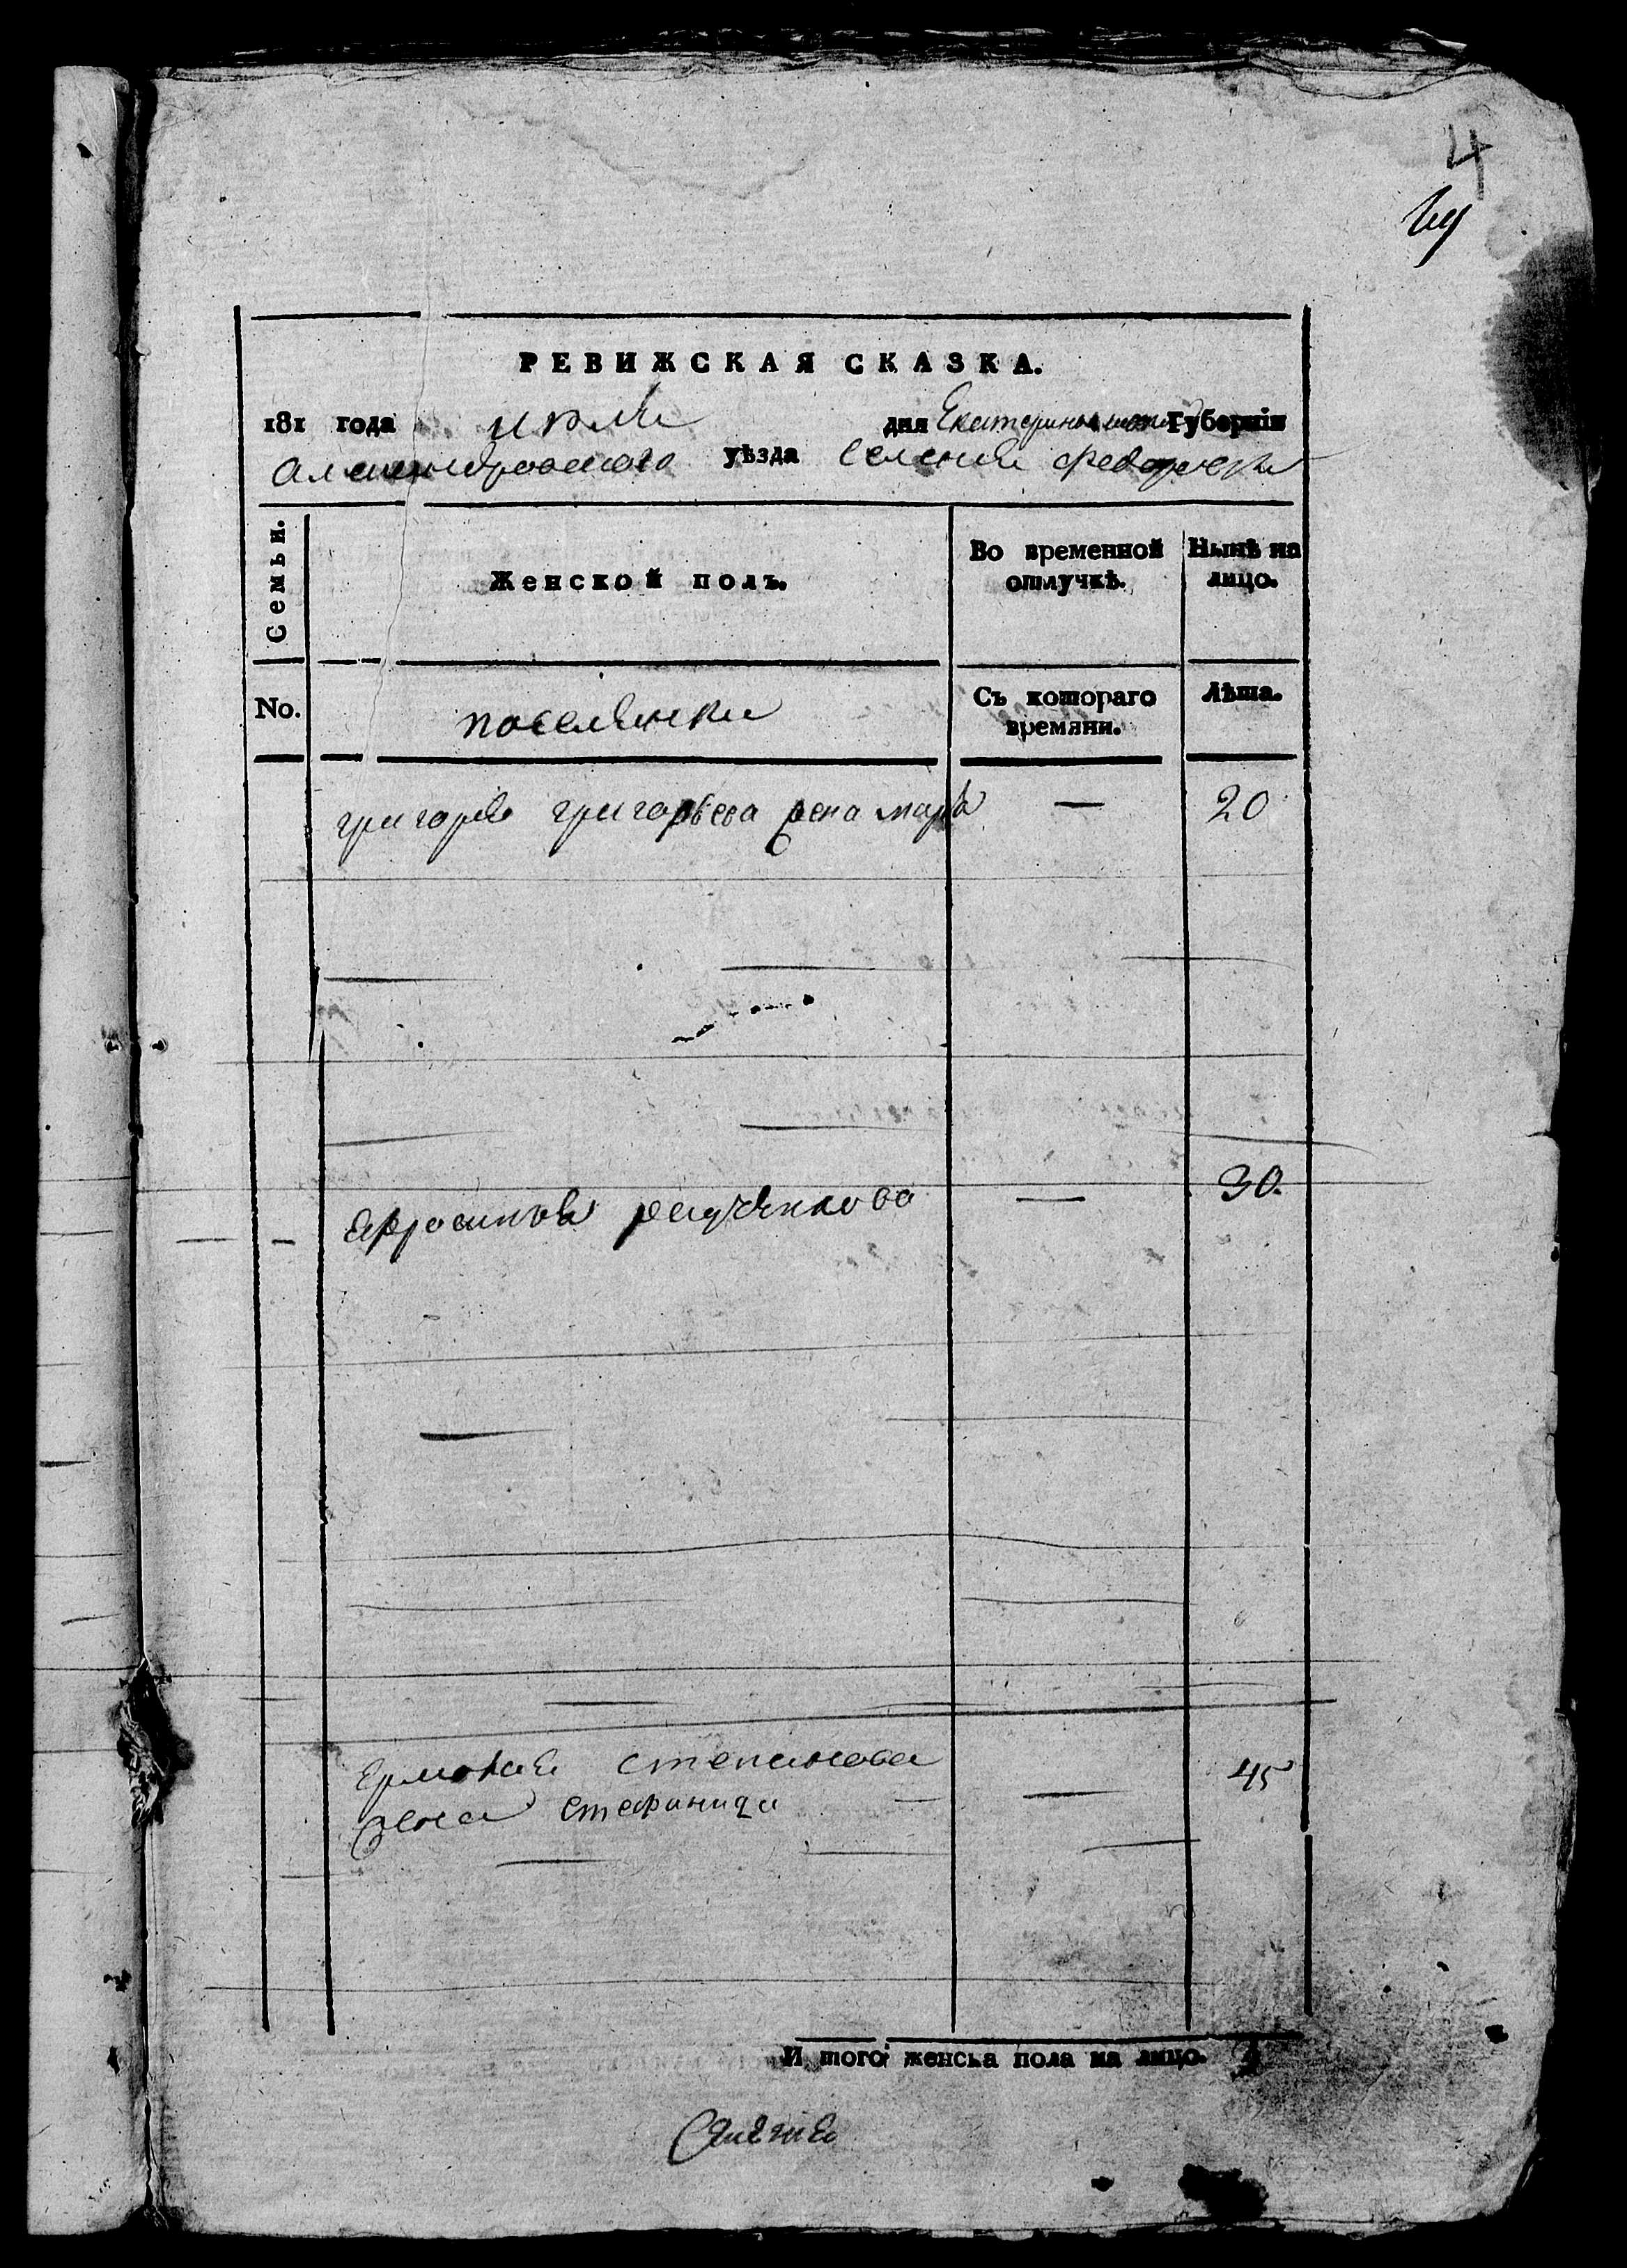 4
РЕВИЖСКАЯ СКАЗКА.
181 года июля дня Екатеринославской Губерніи
Александровского уѣзда селения Федоровки
Семьи. Женской полъ. Во временной отлучкѣ. Нынѣ на лицо.
No. поселянки Съ котораго времяни. Лѣта.
григория григорьева жена марья — 20
— 30.
Ермолая степанова — 45
жена стефанида
И того женска пола на лицо. 3